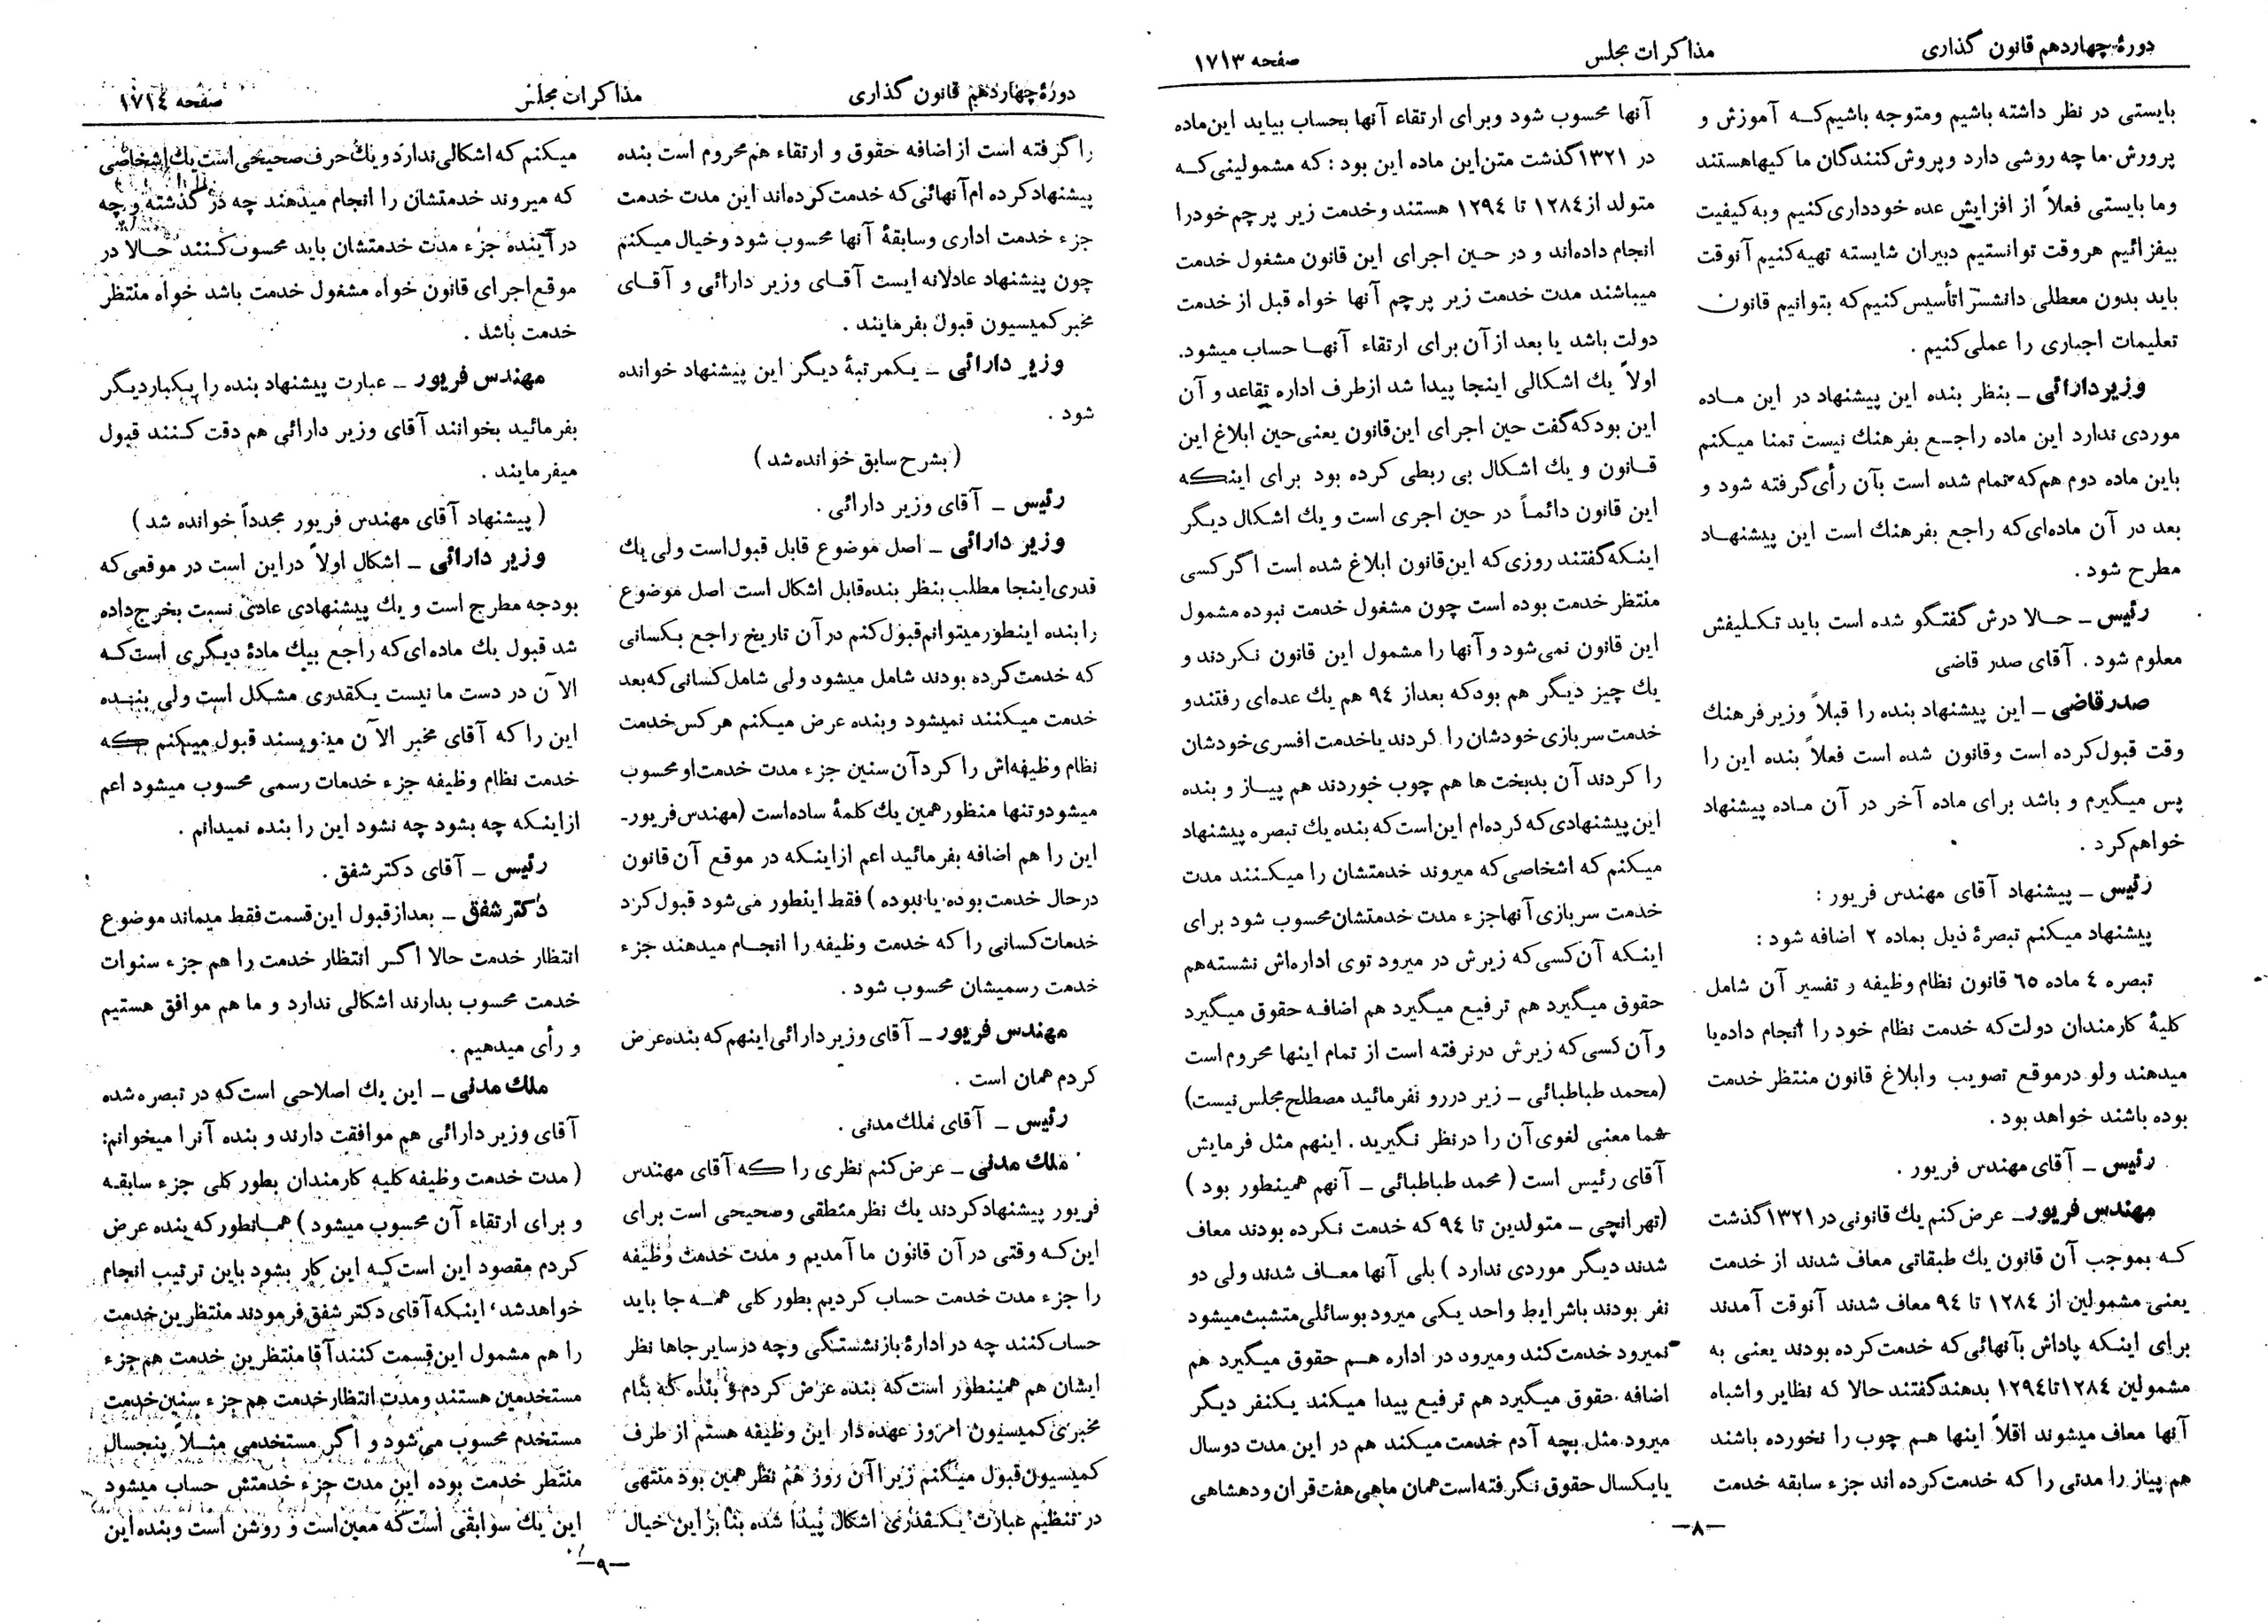 دورهٔ چهاردهم قانون گذاری
مذاکرات مجلس
صفحه ۱۷۱۳
بایستی در نظر داشته باشیم ومتوجه باشیم که آموزش و
پرورش ما چه روشی دارد وپروش کنندگان ما کیها هستند
وما بایستی فعلاً از افزایش عده خودداری کنیم وبه کیفیت
بیفزائیم هروقت توانستیم دبیران شایسته تهیه کنیم آنوقت
باید بدون معطلی دانشسرا تأسیس کنیم که بتوانیم قانون
تعلیمات اجباری را عملی کنیم .
وزیردارائی ـ بنظر بنده این پیشنهاد در این ماده
موردی ندارد این ماده راجع بفرهنك نیست تمنا میکنم
باین ماده دوم هم که تمام شده است بآن رأی گرفته شود و
بعد در آن ماده‌ای که راجع بفرهنك است این پیشنهاد
مطرح شود .
رئیس ـ حالا درش گفتگو شده است باید تکلیفش
معلوم شود . آقای صدر قاضی
صدرقاضی ـ این پیشنهاد بنده را قبلاً وزیرفرهنك
وقت قبول کرده است وقانون شده است فعلاً بنده این را
پس میگیرم و باشد برای ماده آخر در آن ماده پیشنهاد
خواهم کرد .
رئیس ـ پیشنهاد آقای مهندس فریور :
پیشنهاد میکنم تبصرهٔ ذیل بماده ۲ اضافه شود :
تبصره ٤ ماده ٦٥ قانون نظام وظیفه و تفسیر آن شامل
کلیهٔ کارمندان دولت که خدمت نظام خود را انجام داده یا
میدهند ولو درموقع تصویب وابلاغ قانون منتظر خدمت
بوده باشند خواهد بود .
رئیس ـ آقای مهندس فریور .
مهندس فریور ـ عرض کنم یك قانونی در ۱۳۲۱ گذشت
که بموجب آن قانون یك طبقاتی معاف شدند از خدمت
یعنی مشمولین از ۱۲۸٤ تا ۹٤ معاف شدند آنوقت آمدند
برای اینکه پاداش بآنهائی که خدمت کرده بودند یعنی به
مشمولین ۱۲۸٤تا۱۲۹٤ بدهند گفتند حالا که نظایر واشباه
آنها معاف میشوند اقلاً اینها هم چوب را نخورده باشند
هم پیاز را مدتی را که خدمت کرده اند جزء سابقه خدمت
آنها محسوب شود وبرای ارتقاء آنها بحساب بیاید این ماده
در ۱۳۲۱ گذشت متن این ماده این بود : که مشمولینی که
متولد از ۱۲۸٤ تا ۱۲۹٤ هستند وخدمت زیر پرچم خودرا
انجام داده‌اند و در حین اجرای این قانون مشغول خدمت
میباشند مدت خدمت زیر پرچم آنها خواه قبل از خدمت
دولت باشد یا بعد از آن برای ارتقاء آنها حساب میشود.
اولاً یك اشکالی اینجا پیدا شد ازطرف اداره تقاعد و آن
این بود که گفت حین اجرای این قانون یعنی حین ابلاغ این
قانون و یك اشکال بی ربطی کرده بود برای اینکه
این قانون دائماً در حین اجری است و یك اشکال دیگر
اینکه گفتند روزی که این قانون ابلاغ شده است اگر کسی
منتظر خدمت بوده است چون مشغول خدمت نبوده مشمول
این قانون نمی‌شود و آنها را مشمول این قانون نکردند و
یك چیز دیگر هم بود که بعداز ۹٤ هم یك عده‌ای رفتند و
خدمت سربازی خودشان را کردند یا خدمت افسری خودشان
را کردند آن بدبخت ها هم چوب خوردند هم پیاز و بنده
این پیشنهادی که کرده‌ام این است که بنده یك تبصره پیشنهاد
میکنم که اشخاصی که میروند خدمتشان را میکنند مدت
خدمت سربازی آنهاجزء مدت خدمتشان محسوب شود برای
اینکه آن کسی که زیرش در میرود توی اداره‌اش نشسته هم
حقوق میگیرد هم ترفیع میگیرد هم اضافه حقوق میگیرد
و آن کسی که زیرش در نرفته است از تمام اینها محروم است
(محمد طباطبائی ـ زیر دررو نفرمائید مصطلح مجلس نیست)
شما معنی لغوی آن را درنظر نگیرید . اینهم مثل فرمایش
آقای رئیس است ( محمد طباطبائی ـ آنهم همینطور بود )
(تهرانچی ـ متولدین تا ۹٤ که خدمت نکرده بودند معاف
شدند دیگر موردی ندارد ) بلی آنها معاف شدند ولی دو
نفر بودند باشرایط واحد یکی میرود بوسائلی متشبث میشود
نمیرود خدمت کند ومیرود در اداره هم حقوق میگیرد هم
اضافه حقوق میگیرد هم ترفیع پیدا میکند یکنفر دیگر
میرود مثل بچه آدم خدمت میکند هم در این مدت دوسال
یا یکسال حقوق نگرفته است همان ماهی هفت قران و دهشاهی
ـ۸ـ
دورهٔ چهاردهم قانون گذاری
مذاکرات مجلس
صفحه ۱۷۱٤
را گرفته است از اضافه حقوق و ارتقاء هم محروم است بنده
پیشنهاد کرده ام آنهائی که خدمت کرده‌اند این مدت خدمت
جزء خدمت اداری وسابقهٔ آنها محسوب شود وخیال میکنم
چون پیشنهاد عادلانه ایست آقای وزیر دارائی و آقای
مخبر کمیسیون قبول بفرمایند .
وزیر دارائی ـ یکمرتبهٔ دیگر این پیشنهاد خوانده
شود .
( بشرح سابق خوانده شد )
رئیس ـ آقای وزیر دارائی .
وزیر دارائی ـ اصل موضوع قابل قبول است ولی یك
قدری اینجا مطلب بنظر بنده قابل اشکال است اصل موضوع
را بنده اینطور میتوانم قبول کنم در آن تاریخ راجع بکسانی
که خدمت کرده بودند شامل میشود ولی شامل کسانی که بعد
خدمت میکنند نمیشود وبنده عرض میکنم هر کس خدمت
نظام وظیفه‌اش را کرد آن سنین جزء مدت خدمت او محسوب
میشود و تنها منظور همین یك کلمهٔ ساده است (مهندس فریور ـ
این را هم اضافه بفرمائید اعم ازاینکه در موقع آن قانون
درحال خدمت بوده یا نبوده ) فقط اینطور می‌شود قبول کرد
خدمات کسانی را که خدمت وظیفه را انجام میدهند جزء
خدمت رسمیشان محسوب شود .
مهندس فریور ـ آقای وزیردارائی اینهم که بنده عرض
کردم همان است .
رئیس ـ آقای ملك مدنی .
ملك مدنی ـ عرض کنم نظری را که آقای مهندس
فریور پیشنهاد کردند یك نظر منطقی وصحیحی است برای
این که وقتی در آن قانون ما آمدیم و مدت خدمت وظیفه
را جزء مدت خدمت حساب کردیم بطور کلی همه جا باید
حساب کنند چه در ادارهٔ بازنشستگی وچه درسایر جاها نظر
ایشان هم همینطور است که بنده عرض کردم و بنده که بنام
مخبری کمیسیون امروز عهده دار این وظیفه هستم از طرف
کمیسیون قبول میکنم زیرا آن روز هم نظر همین بود منتهی
در تنظیم عبارت یکقدری اشکال پیدا شده بنا براین خیال
میکنم که اشکالی ندارد و یك حرف صحیحی است یك اشخاصی
که میروند خدمتشان را انجام میدهند چه در گذشته و چه
در آینده جزء مدت خدمتشان باید محسوب کنند حالا در
موقع اجرای قانون خواه مشغول خدمت باشد خواه منتظر
خدمت باشد .
مهندس فریور ـ عبارت پیشنهاد بنده را یکبار دیگر
بفرمائید بخوانند آقای وزیر دارائی هم دقت کنند قبول
میفرمایند .
( پیشنهاد آقای مهندس فریور مجدداً خوانده شد )
وزیر دارائی ـ اشکال اولاً دراین است در موقعی که
بودجه مطرح است و یك پیشنهادی عادی نسبت بخرج داده
شد قبول یك ماده‌ای که راجع بیك مادهٔ دیگری است که
الآن در دست ما نیست یکقدری مشکل است ولی بنده
این را که آقای مخبر الآن مینویسند قبول میکنم که
خدمت نظام وظیفه جزء خدمات رسمی محسوب میشود اعم
ازاینکه چه بشود چه نشود این را بنده نمیدانم .
رئیس ـ آقای دکتر شفق .
دکتر شفق ـ بعد از قبول این قسمت فقط میماند موضوع
انتظار خدمت حالا اگر انتظار خدمت را هم جزء سنوات
خدمت محسوب بدارند اشکالی ندارد و ما هم موافق هستیم
و رأی میدهیم .
ملك مدنی ـ این یك اصلاحی است که در تبصره شده
آقای وزیر دارائی هم موافقت دارند و بنده آنرا میخوانم:
( مدت خدمت وظیفه کلیه کارمندان بطور کلی جزء سابقه
و برای ارتقاء آن محسوب میشود ) همانطور که بنده عرض
کردم مقصود این است که این کار بشود باین ترتیب انجام
خواهدشد، اینکه آقای دکتر شفق فرمودند منتظرین خدمت
را هم مشمول این قسمت کنند آقا منتظرین خدمت هم جزء
مستخدمین هستند ومدت انتظار خدمت هم جزء سنین خدمت
مستخدم محسوب می‌شود و اگر مستخدمی مثلاً پنجسال
منتظر خدمت بوده این مدت جزء خدمتش حساب میشود
این یك سوابقی است که معین است و روشن است وبنده این
ـ۹ـ